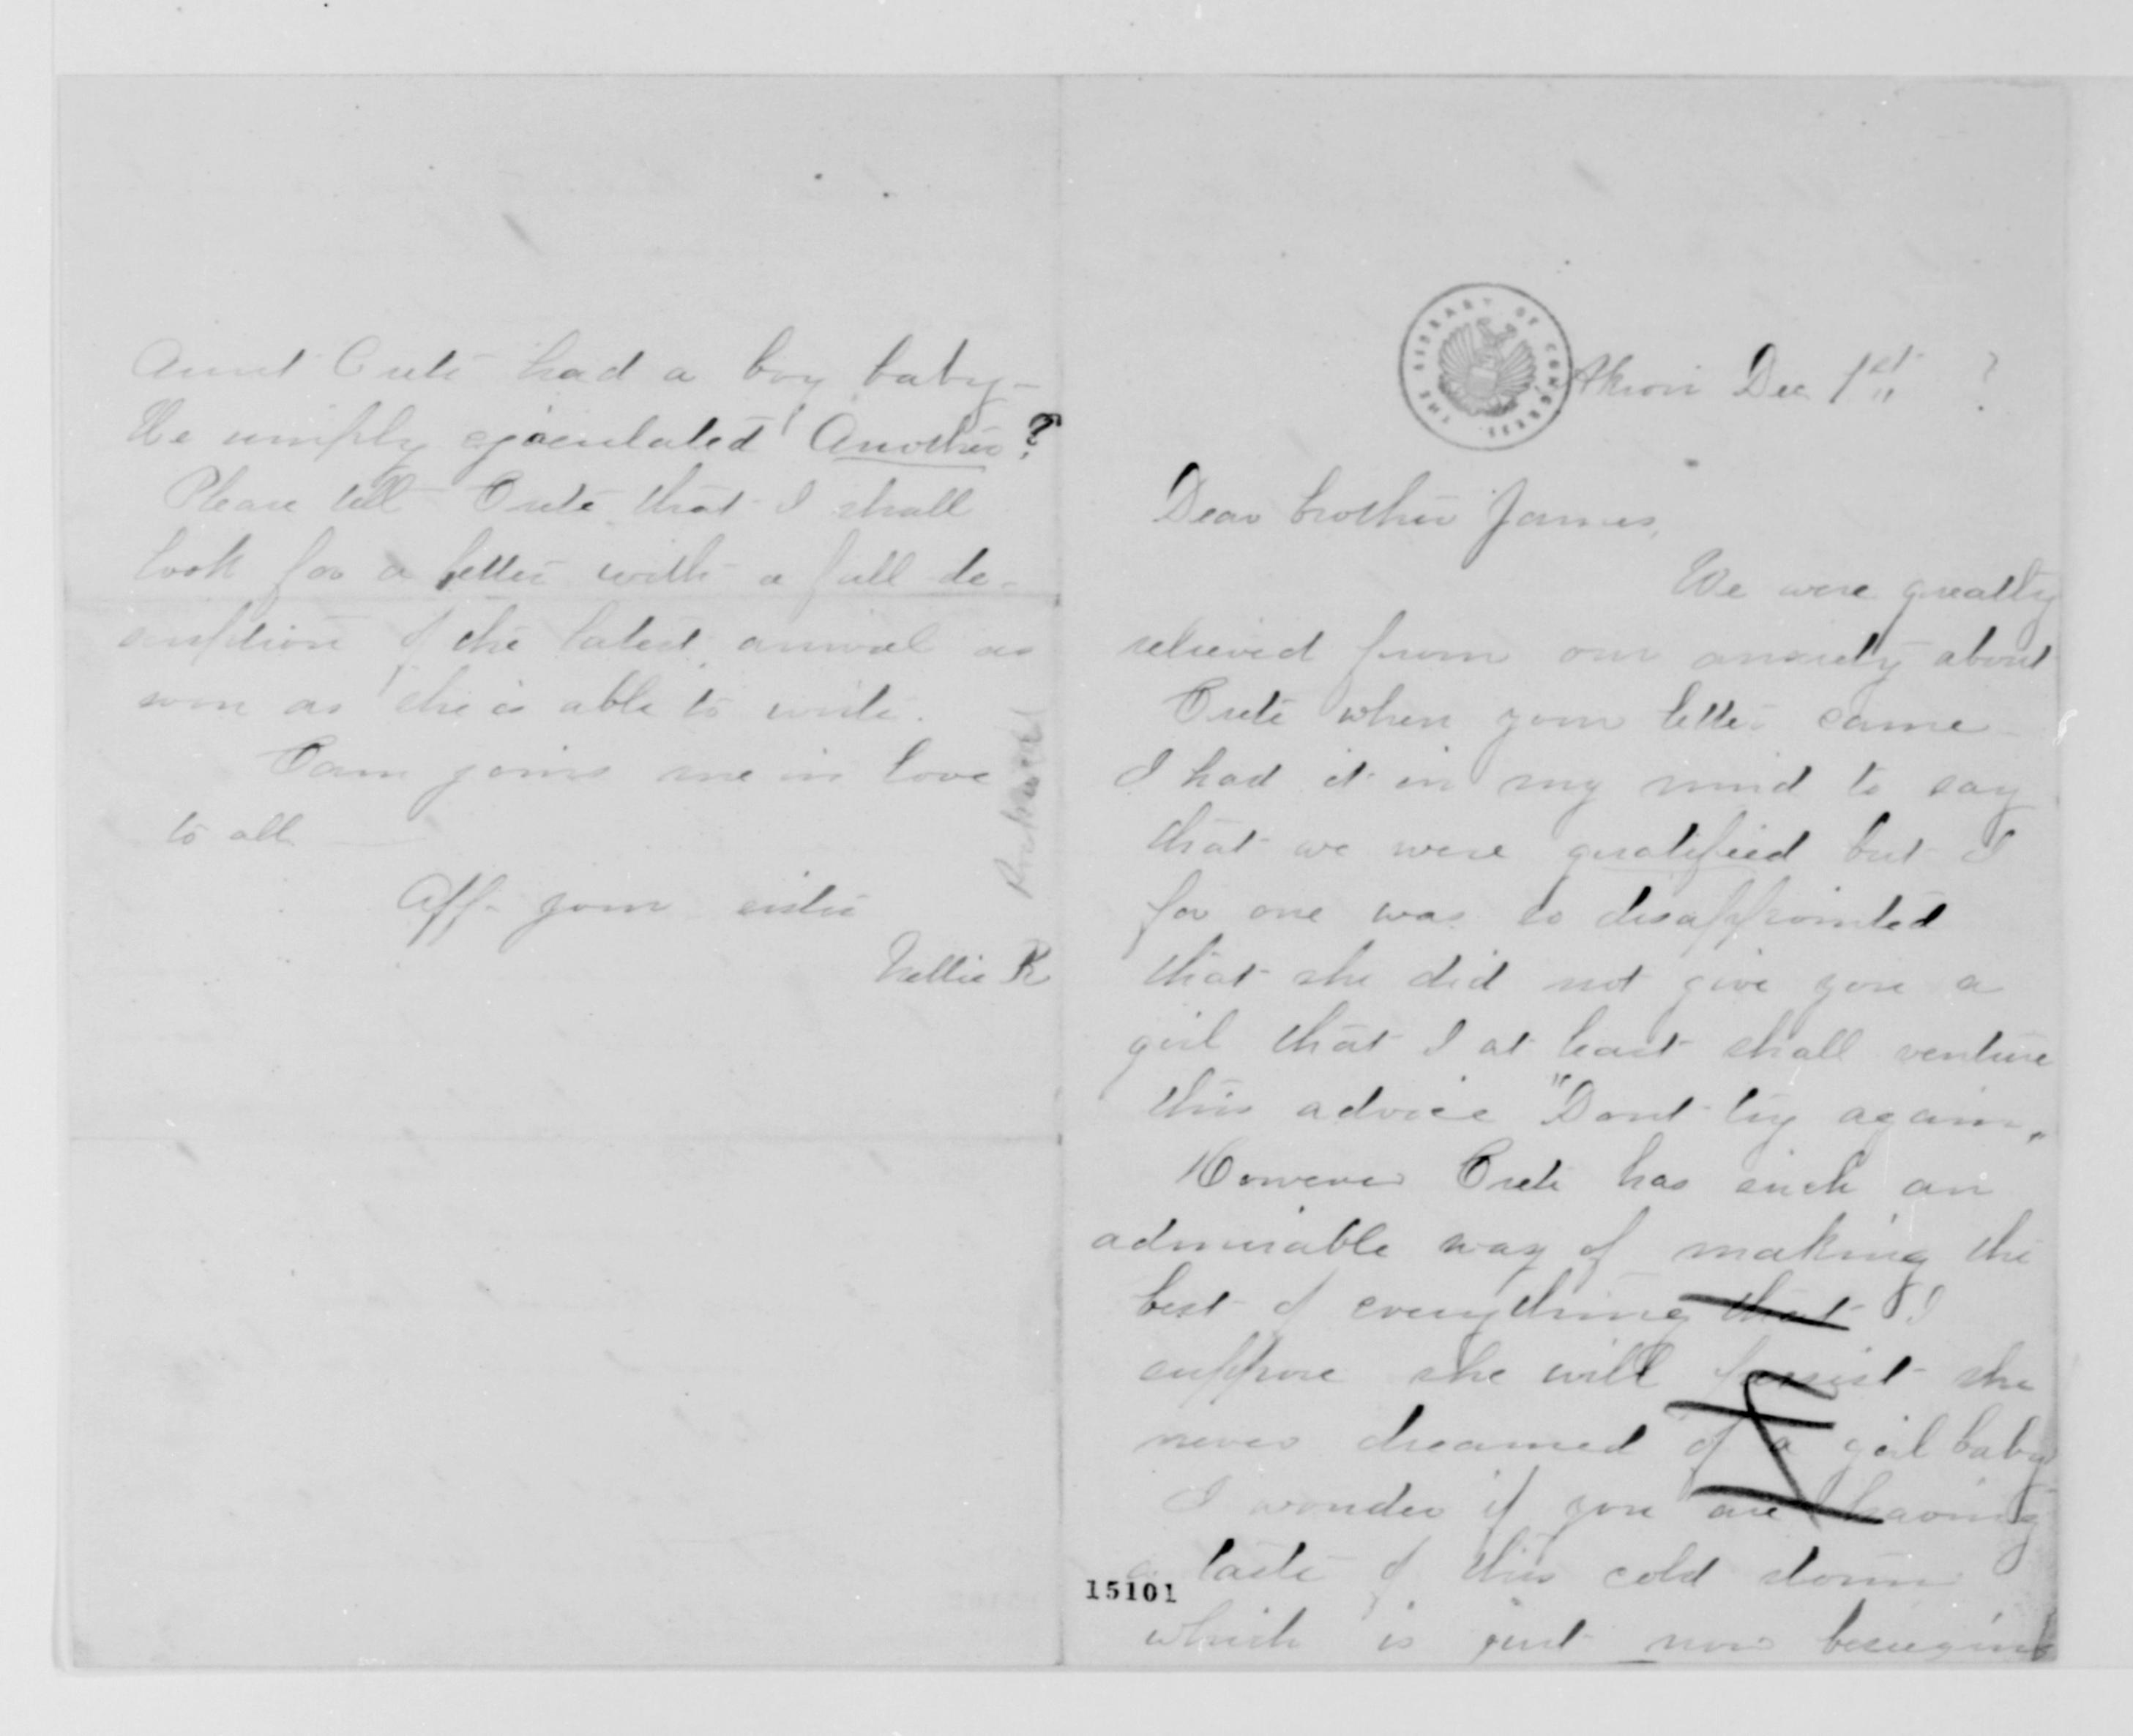 Aunt Crete had a boy baby-
He simply ejaculated "Another?
Please tell Crete that I shall
look for a letter with a full de-
scription of the latest arrival as
soon as she is able to write.
Cam joins me in love
to all
Aff- your sister
Nellie R
Rockwell
THE LIBRARY OF CONGRESS
Akron Dec 1st ?
Dear brother James,
We were greatly
relieved from our anxiety about
Crete when your letter came
I had it in my mind to say
that we were gratified but I
for one was so disappointed
that she did not give you a
girl that I at least shall venture
this advice "Dont try again"
However Crete has such an
admirable way of making the
best of everything that I
suppose she will persist she
never dreamed of a girl baby
I wonder if you are having
a taste of this cold storm
which is just now besieging
15101